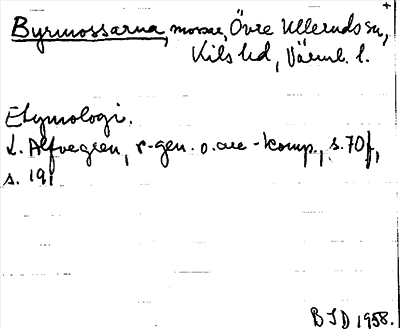 Byrmossarna, mossar, Övre Ulleruds sn,
Kils hd, Värml. l.
Etymologi.
L. Alfvegren, r-gen. o. are-komp., s. 70f,
s. 191
BJD 1958.